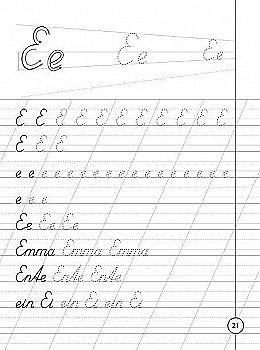 Ee Ee Ee
E E E E E E E E E E E
E E E
e e e e e e e e e e e e e e e e e e
e e e
Ee Ee Ee
Emma Emma Emma
Ente Ente Ente
ein Ei ein Ei ein Ei
21